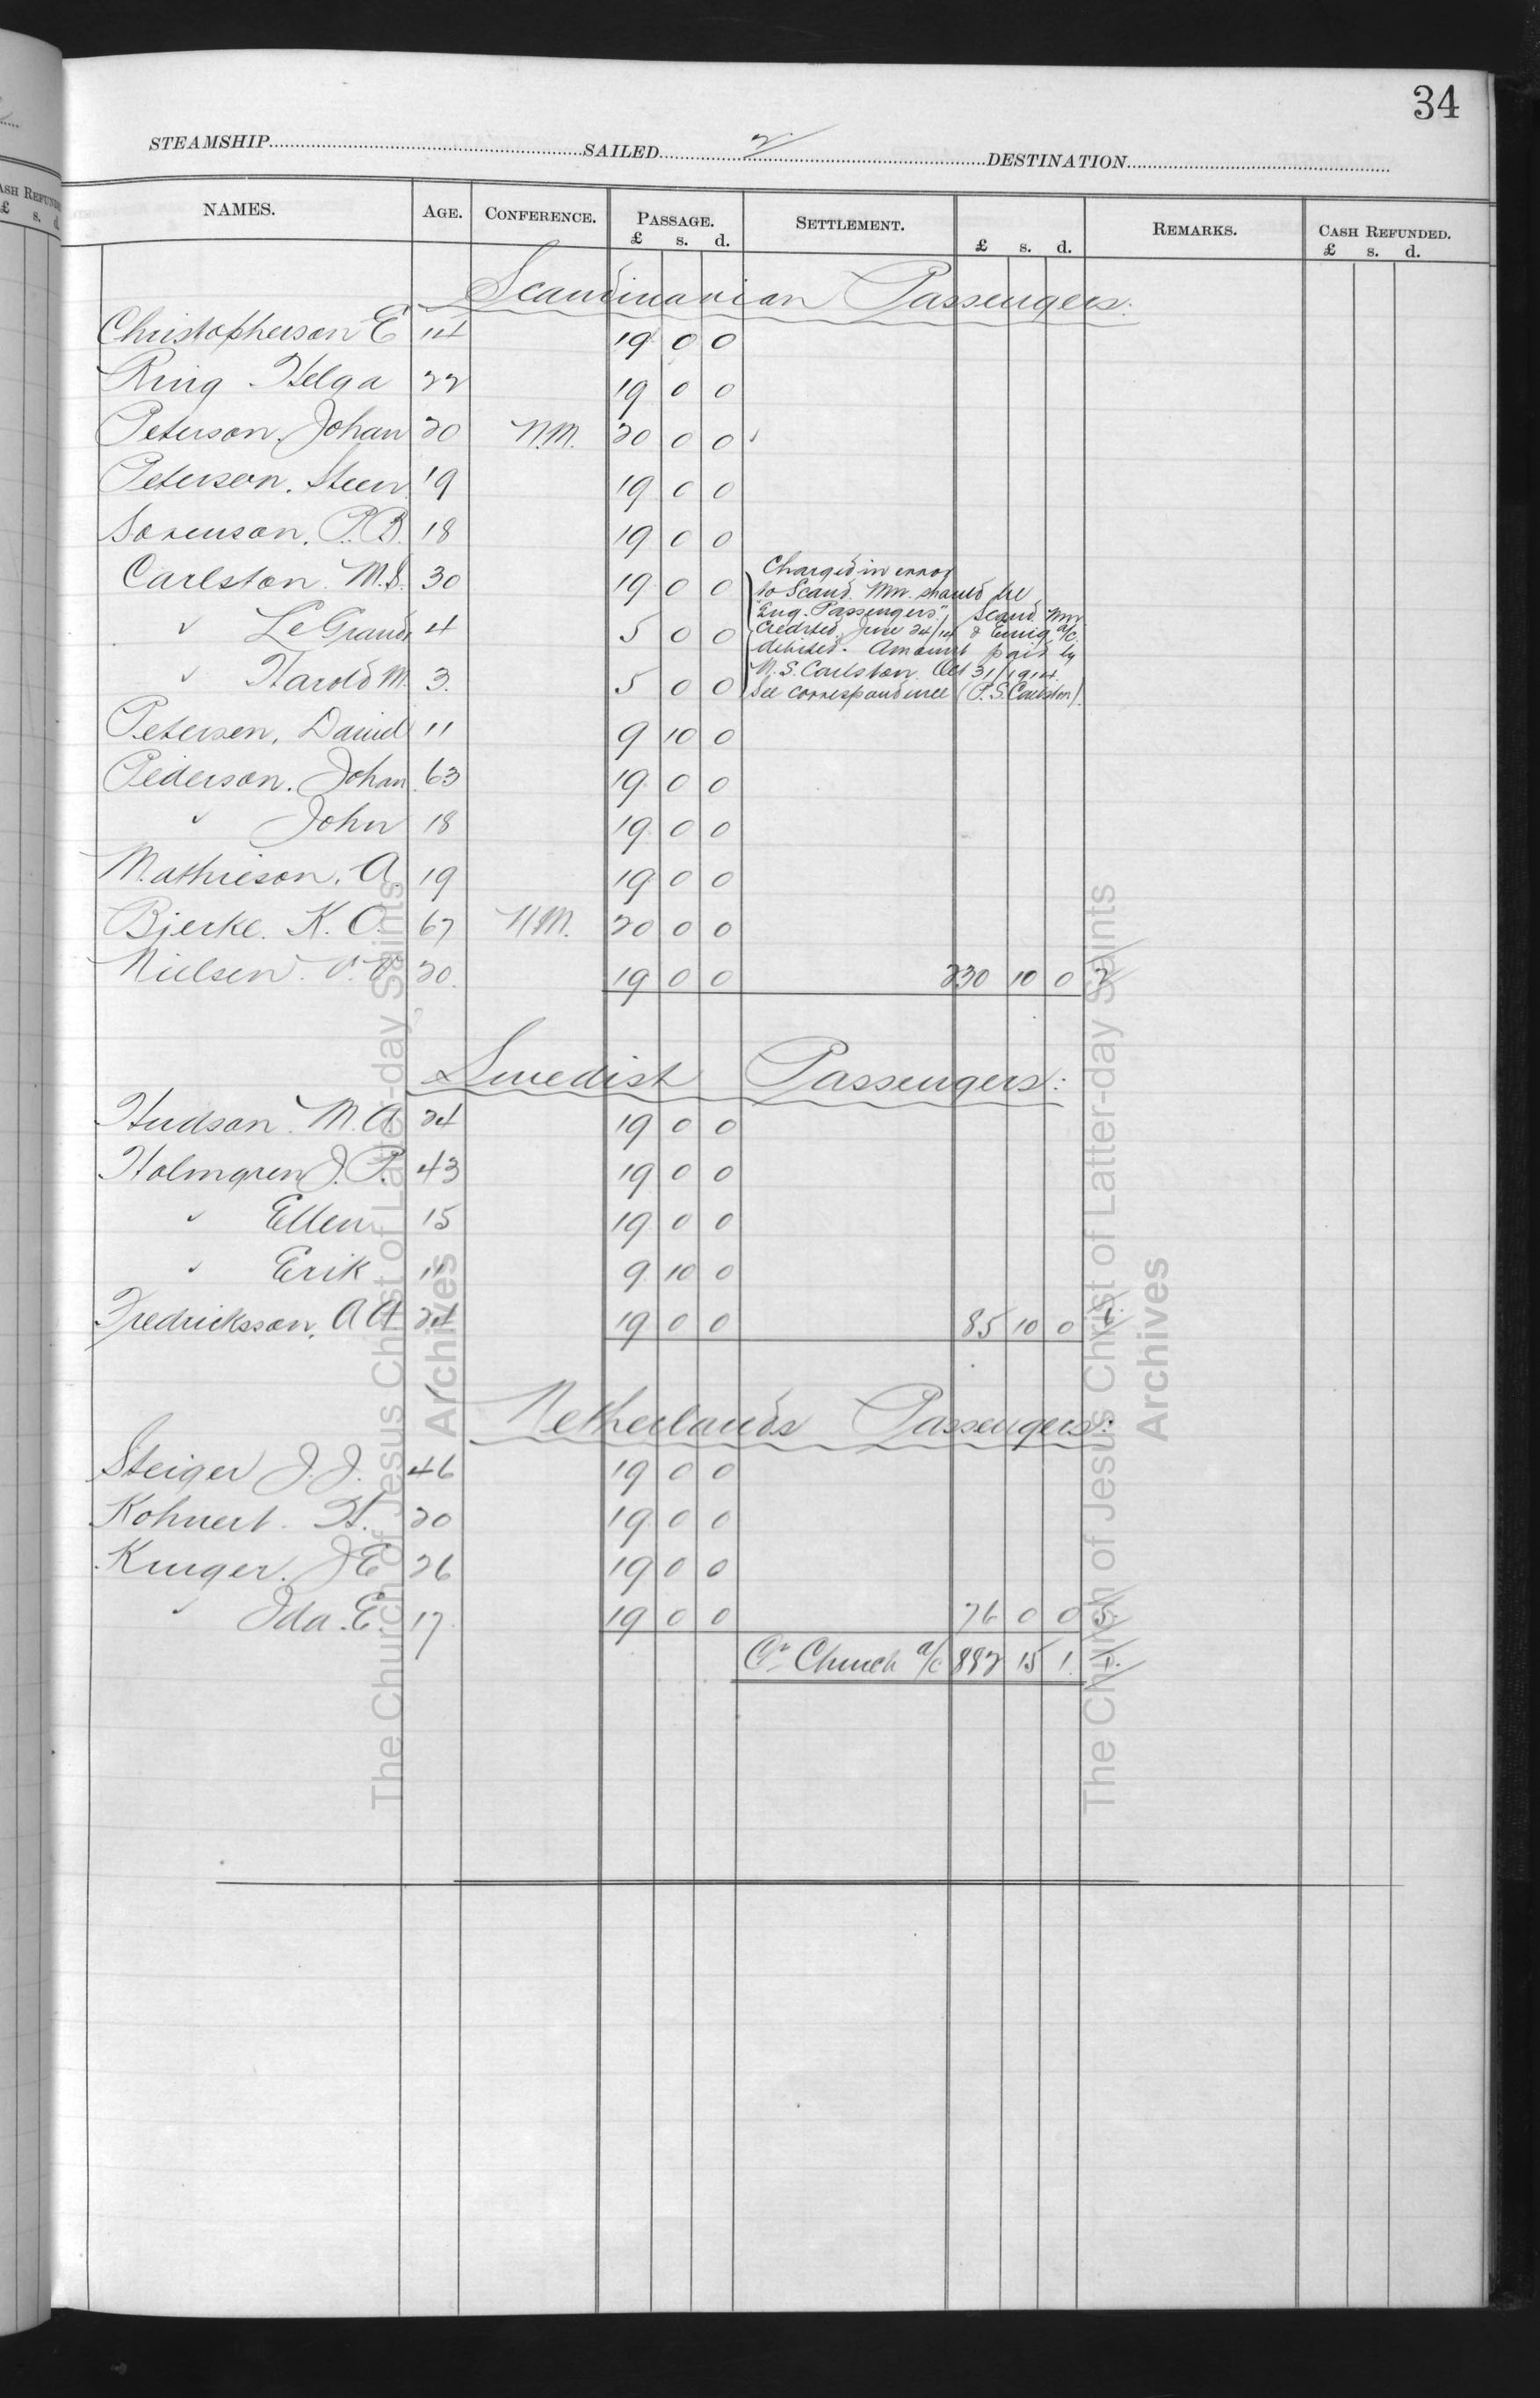 34
STEAMSHIP SAILED 2 DESTINATION
NAMES. AGE. CONFERENCE. PASSAGE. £ s. d. SETTLEMENT. £ s. d. REMARKS. CASH REFUNDED. £ s. d.
Scandinavian Passengers:
Christopherson E 44 19 0 0
Ring Helga 22 19 0 0
Peterson, Johan 20 N.M. 20 0 0 ✓
Peterson, Steen 19 19 0 0
Sorenson, P.B. 18 19 0 0
Carlston M.S. 30 19 0 0
" LeGrand 4 5 0 0
" Harold M. 3. 5 0 0
Charged in error
to Scand. Mn. should be
"Eng. Passengers". Scand. Mn
Credited June 24/14 & Emig a/c
debited. Amount paid by
M.S. Carlston Oct 31/1914.
See correspondence (P.S. Carlston).
Petersen, David 11 9 10 0
Pederson, Johan 63 19 0 0
" John 18 19 0 0
Mathieson, A. 19 19 0 0
Bjerke. K. O. 67 N.M. 20 0 0
Nielsen. V. V. 20. 19 0 0 230 10 0 2
Swedish Passengers:
Hudson M.A 24 19 0 0
Holmgren J. P. 43 19 0 0
" Ellen 15 19 0 0
" Erik 11 9 10 0
Fredricksson, A A 24 19 0 0 85 10 0 6
Netherlands Passengers:
Steiger J. J. 46 19 0 0
Kohnert. H. 20 19 0 0
Kruger. J E 26 19 0 0
" Ida. E. 17 19 0 0 76 0 0 5.
Cr Church a/c 882 15 1. 1.
The Church of Jesus Christ of Latter-day Saints
Archives
The Church of Jesus Christ of Latter-day Saints
Archives
CASH REFUNDED
£ s. d.